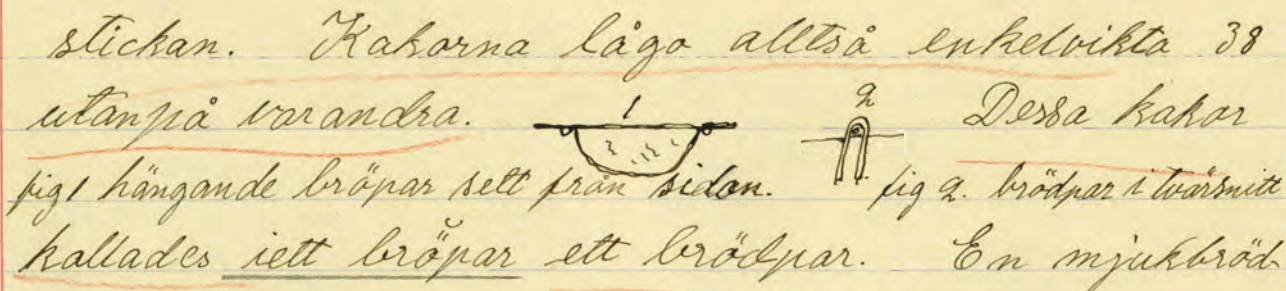 stickan. Kakorna lågo alltså enkelvikta 38
utanpå varandra. 1 2 Dessa kakor
fig 1 hängande bröpar sett från sidan. fig 2. brödpar i tvärsnitt
kallades iett brö̆par ett brödpar. En mjukbröd-